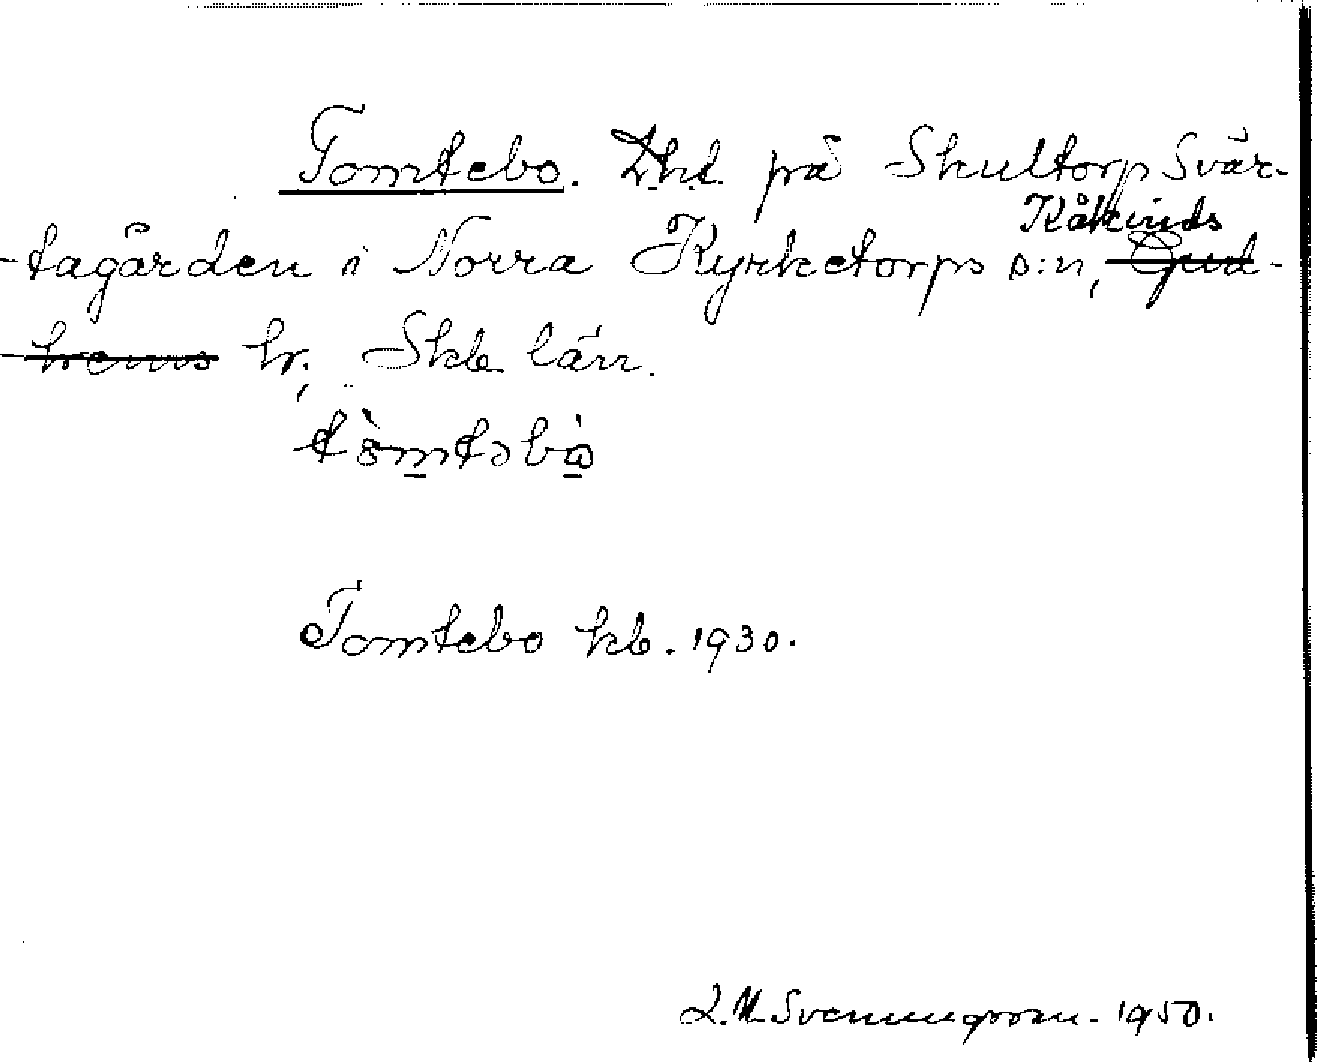 Tomtebo. Lht. på Skultorp Svär-
tagården i Norra Kyrketorps s:n, Kåkinds Gud-
hems hr, Skb. län.
tòmtəbò
Tomtebo kb. 1930.
L.M. Svenungsson. 1950.